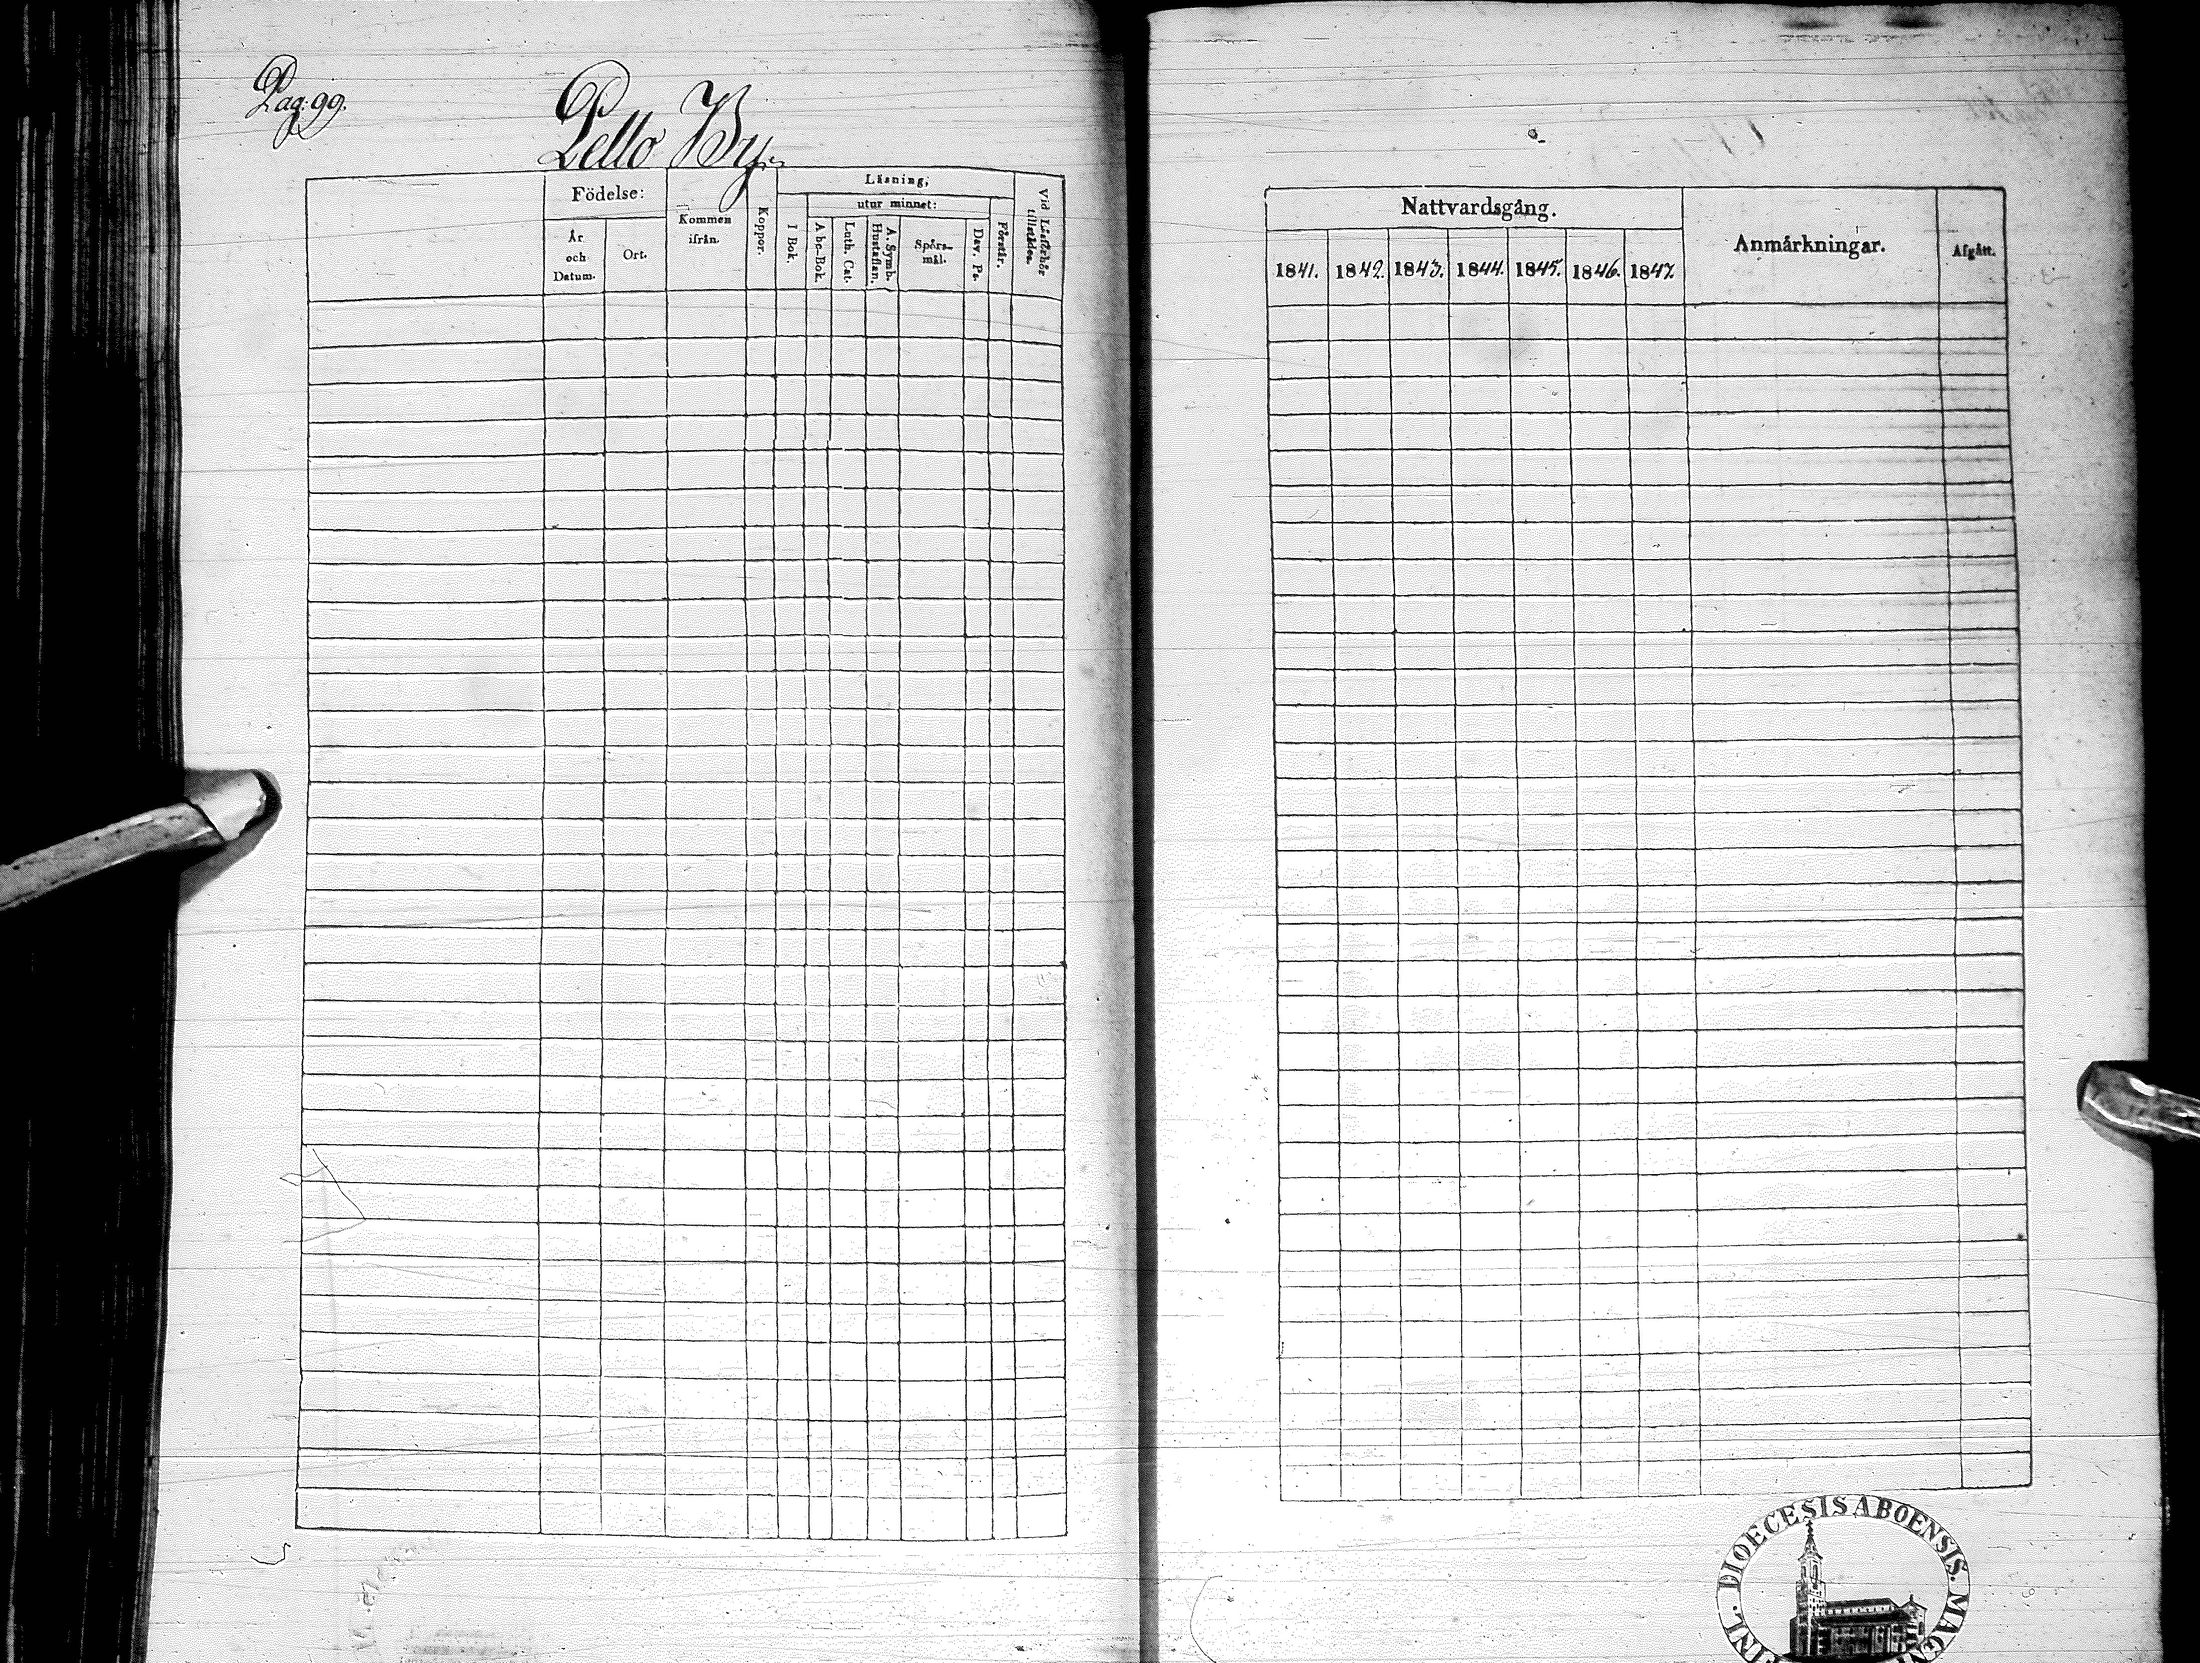 Pag: 99.
Pello By.
Födelse:
År och Datum.
Ort.
Kommen ifrån.
Koppor.
Läsning;
I Bok.
utur minnet:
Abc-Bok.
Luth. Cat.
A. Symb. Hustaflan.
Spörsmål.
Dav. Ps.
Förstår.
Vid Läsförhör tillstädes.
Nattvardsgång.
1841. 1842. 1843. 1844. 1845. 1846. 1847.
Anmärkningar.
Afgått.
DIOECESIS ABOENSIS. MAG